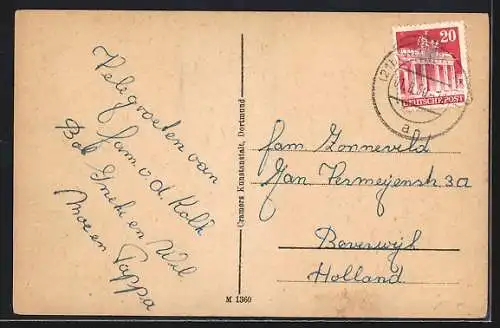 Vele groeten van
fam v. d. Kolk
Bob Ineke en Wil
Moe en Pappa
Cramers Kunstanstalt, Dortmund
M 1360
20
DEUTSCHE POST
fam Zonneveld
Jan Vermeyenstr 3a
Beverwijk
Holland